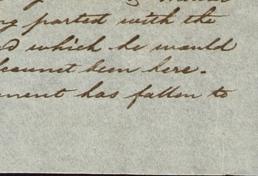 ng parted with the
d which he would
cannot been here.
ment has fallen to